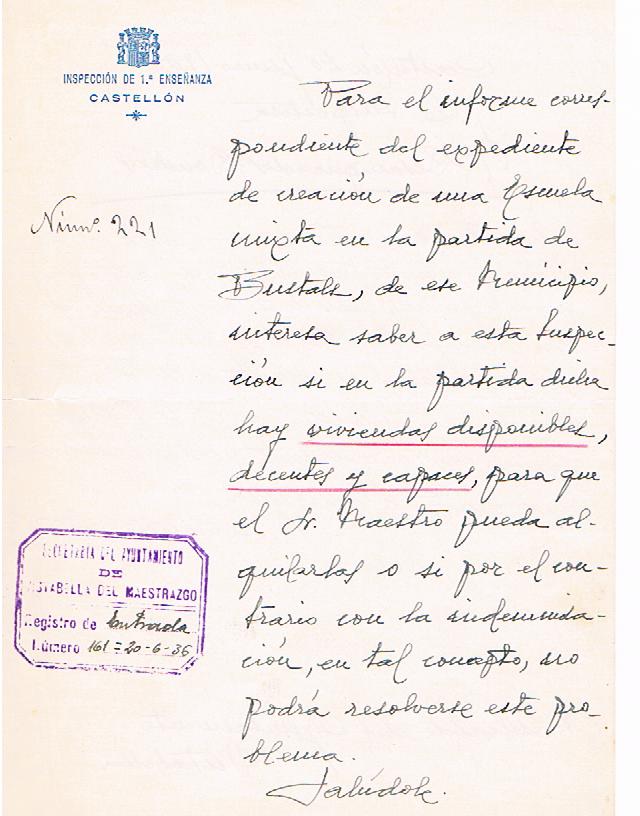 INSPECCIÓN DE 1.ª ENSEÑANZA
CASTELLÓN
Núm.º 221
Para el informe corres-
pondiente del expediente
de creación de una Escuela
mixta en la partida de
Bustals, de ese Municipio,
interesa saber a esta Inspec-
ción si en la partida dicha
hay viviendas disponibles,
decentes y capaces, para que
el Sr. Maestro pueda al-
quilarlas o si por el con-
trario con la indemniza-
ción, en tal concepto, no
podrá resolverse este pro-
blema.
Salúdole.
SECRETARIA DEL AYUNTAMIENTO
DE
VISTABELLA DEL MAESTRAZGO
Registro de Entrada
Número 161 = 20-6-36